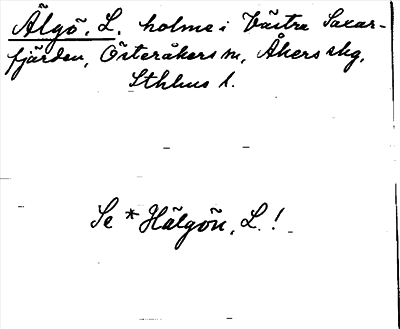 Älgö, L. holme i Västra Saxar-
fjärden, Österåkers sn, Åkers skg,
Sthlms l.
Se *Hälgön, L.!